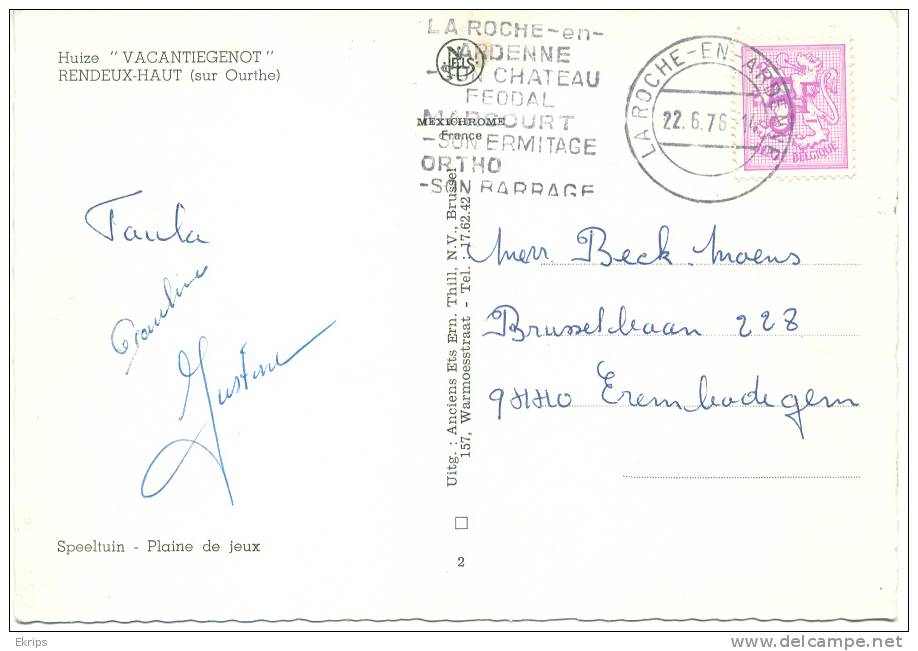 Huize "VACANTIEGENOT"
RENDEUX-HAUT (sur Ourthe)
LA ROCHE-en-
ARDENNE
-SON CHATEAU
FEODAL
MARCOURT
-SON ERMITAGE
ORTHO
-SON BARRAGE
NELS
MEXICHROME
France
LA ROCHE-EN-ARDENNE
22.6.76
BELGIQUE
Paula
Pauline
Gustine
Uitg. : Anciens Ets Ern. Thill, N.V., Brussel
157, Warmoesstraat - Tel. : 17.62.42
Mevr Beck-Moens
Brusselbaan 228
9440 Erembodegem
Speeltuin - Plaine de jeux
2
Ekrips
www.delcampe.net